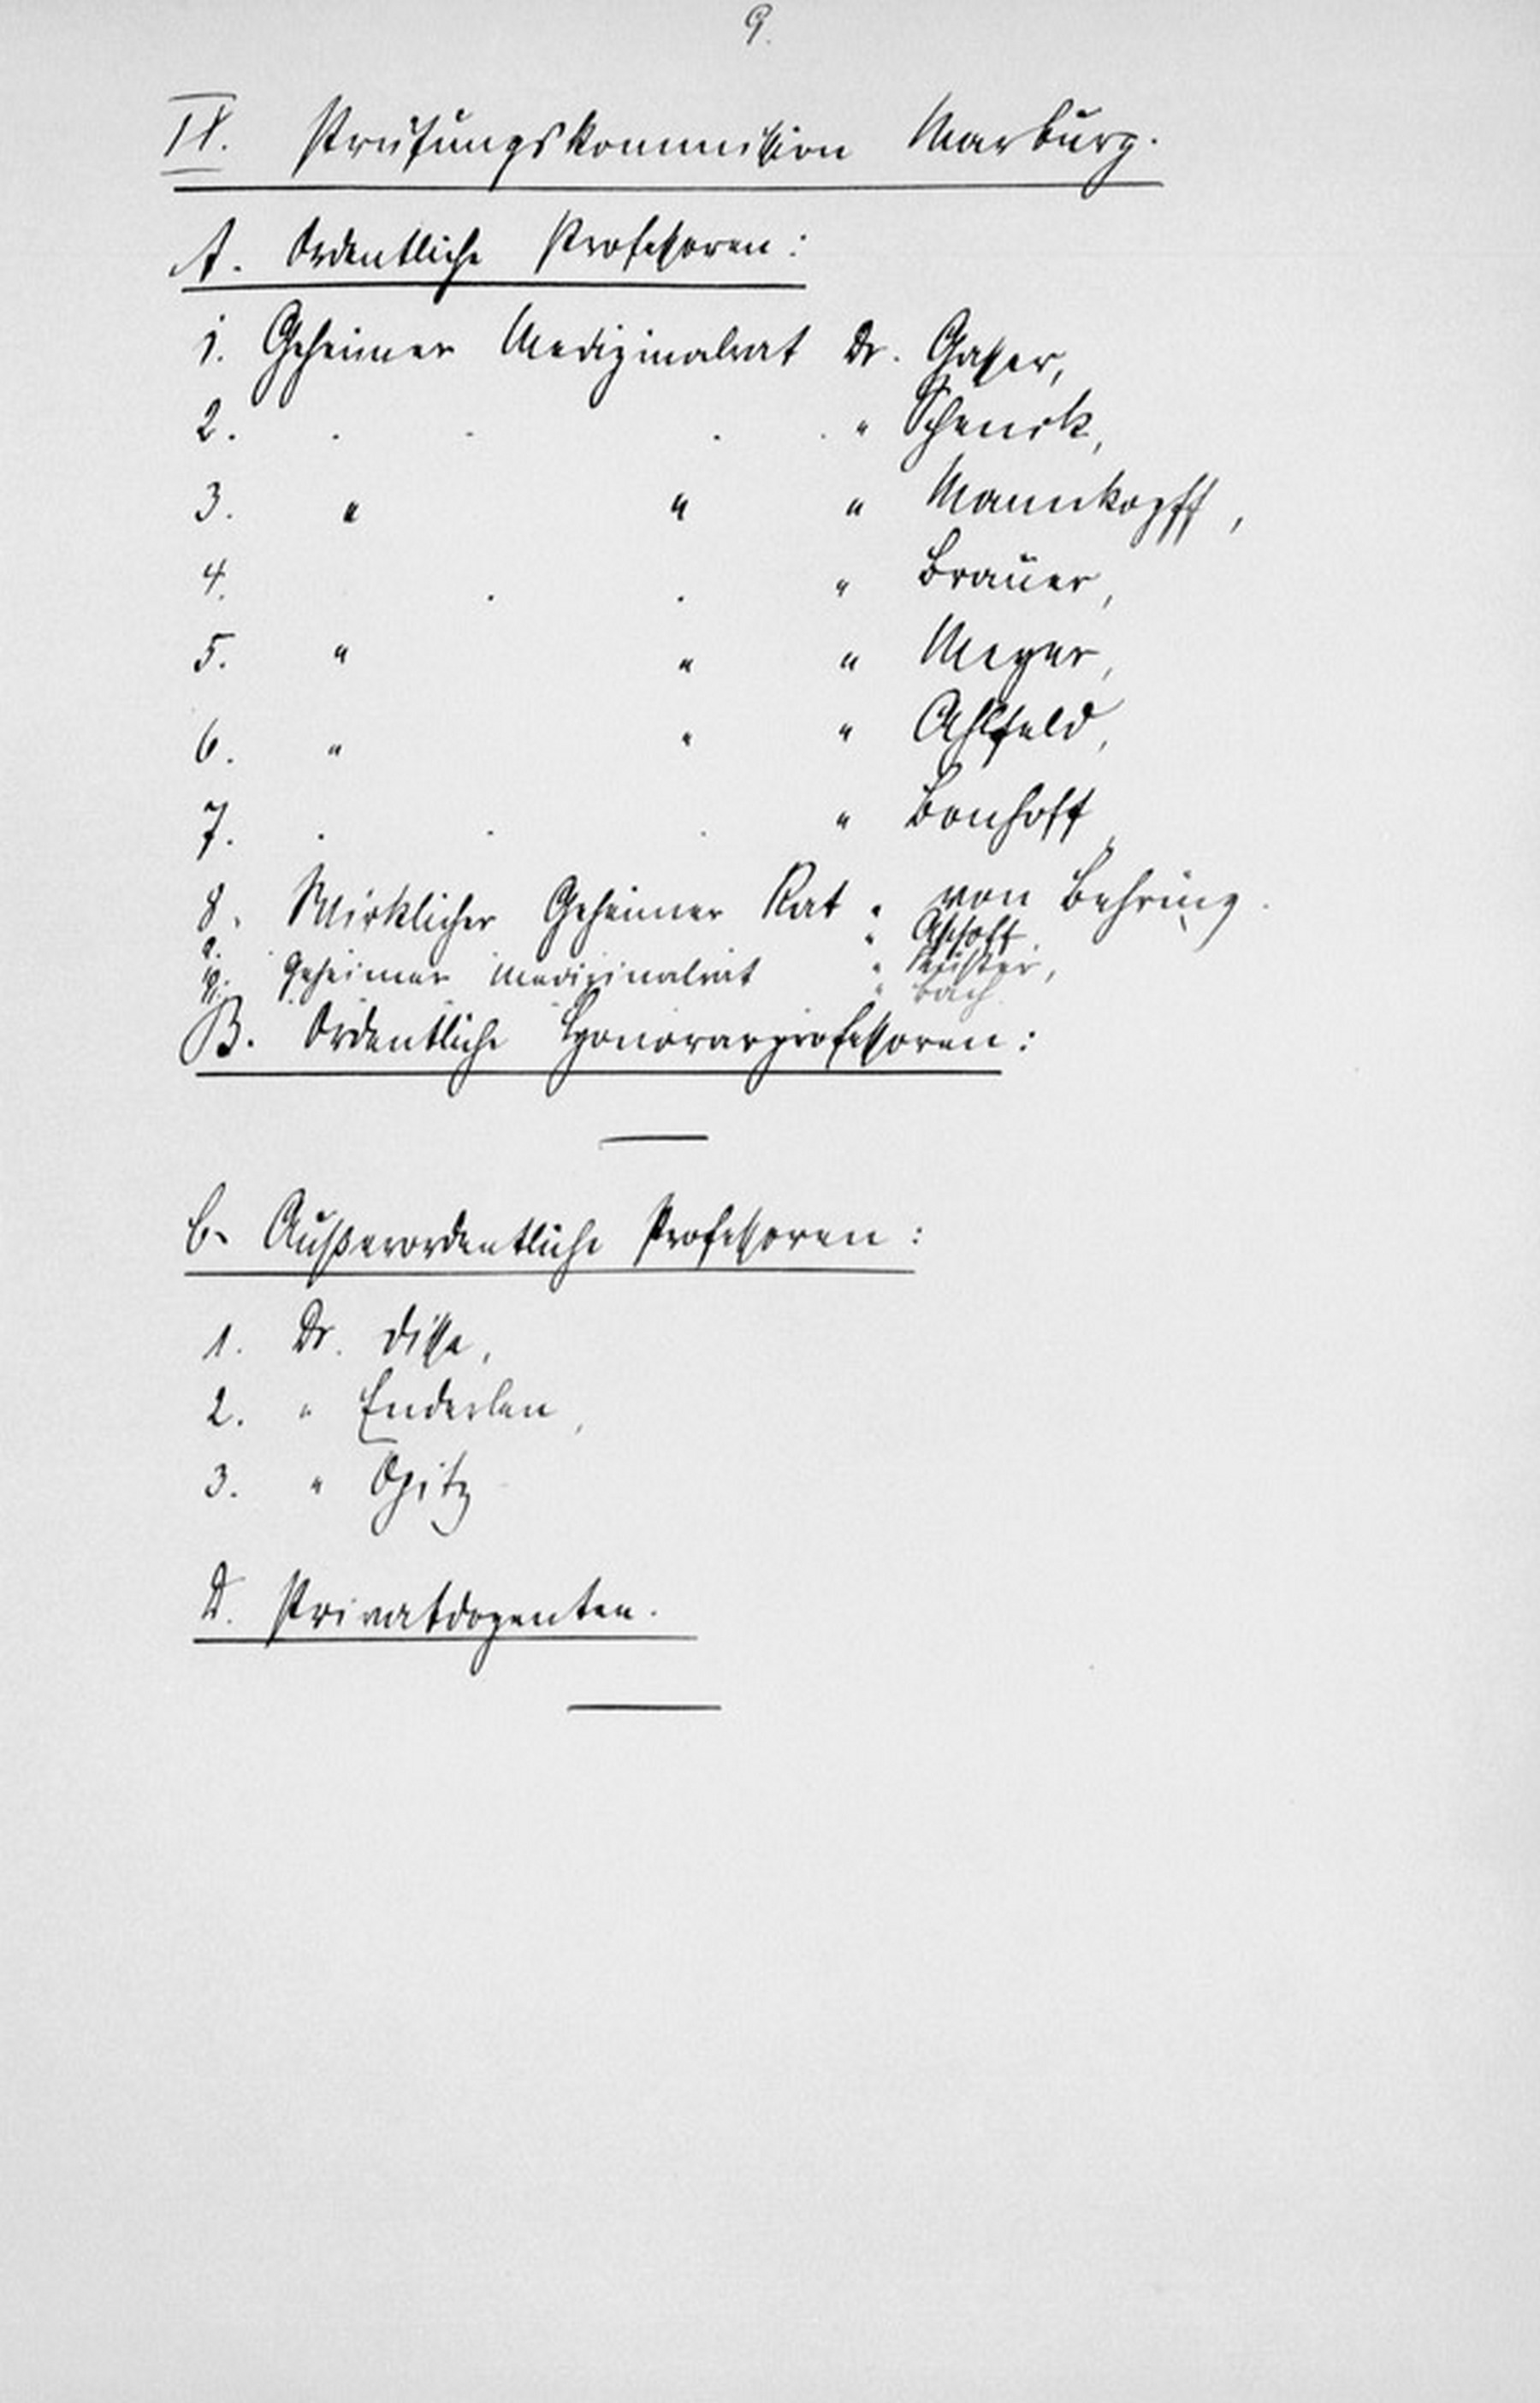 9.
IX. Prüfungskommission Marburg.
A. Ordentliche Professoren:
1. Geheimer Medizinalrat Dr. Gasser,
2. . . . . " Schenck,
3. " " " Mannkopff,
4. . . " Brauer,
5. " " " Meyer,
6. " " " Ahlfeld,
7. . . . " Bonhoff,
8. Wirklicher Geheimer Rat " von Behring.
9. " Aschoff
10. Geheimer Medizinalrat " Küster,
" Bach.
B. Ordentliche Honorarprofessoren:
C. Außerordentliche Professoren:
1. Dr. Disse,
2. " Enderlen,
3. " Opitz
D. Privatdozenten.